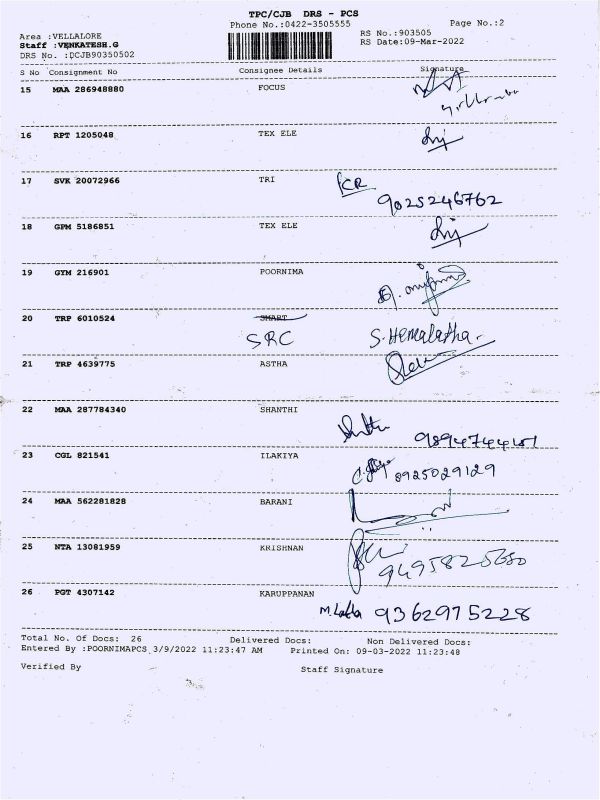 TPC/CJB DRS - PCS
Phone No.:0422-3505555 Page No.:2
Area :VELLALORE RS No.:903505
Staff :VENKATESH.G RS Date:09-Mar-2022
DRS No. :DCJB90350502
S No Consignment No Consignee Details Signature
15 MAA 286948880 FOCUS
16 RPT 1205048 TEX ELE
17 SVK 20072966 TRI KR
9025246762
18 GPM 5186851 TEX ELE
19 GYM 216901 POORNIMA
20 TRP 6010524 SMART
SRC S. Hemalatha
21 TRP 4639775 ASTHA
22 MAA 287784340 SHANTHI
23 CGL 821541 ILAKIYA
8925029129
24 MAA 562281828 BARANI
25 NTA 13081959 KRISHNAN
26 PGT 4307142 KARUPPANAN
M. Latha 9362975228
Total No. Of Docs: 26 Delivered Docs: Non Delivered Docs:
Entered By :POORNIMAPCS 3/9/2022 11:23:47 AM Printed On: 09-03-2022 11:23:48
Verified By Staff Signature